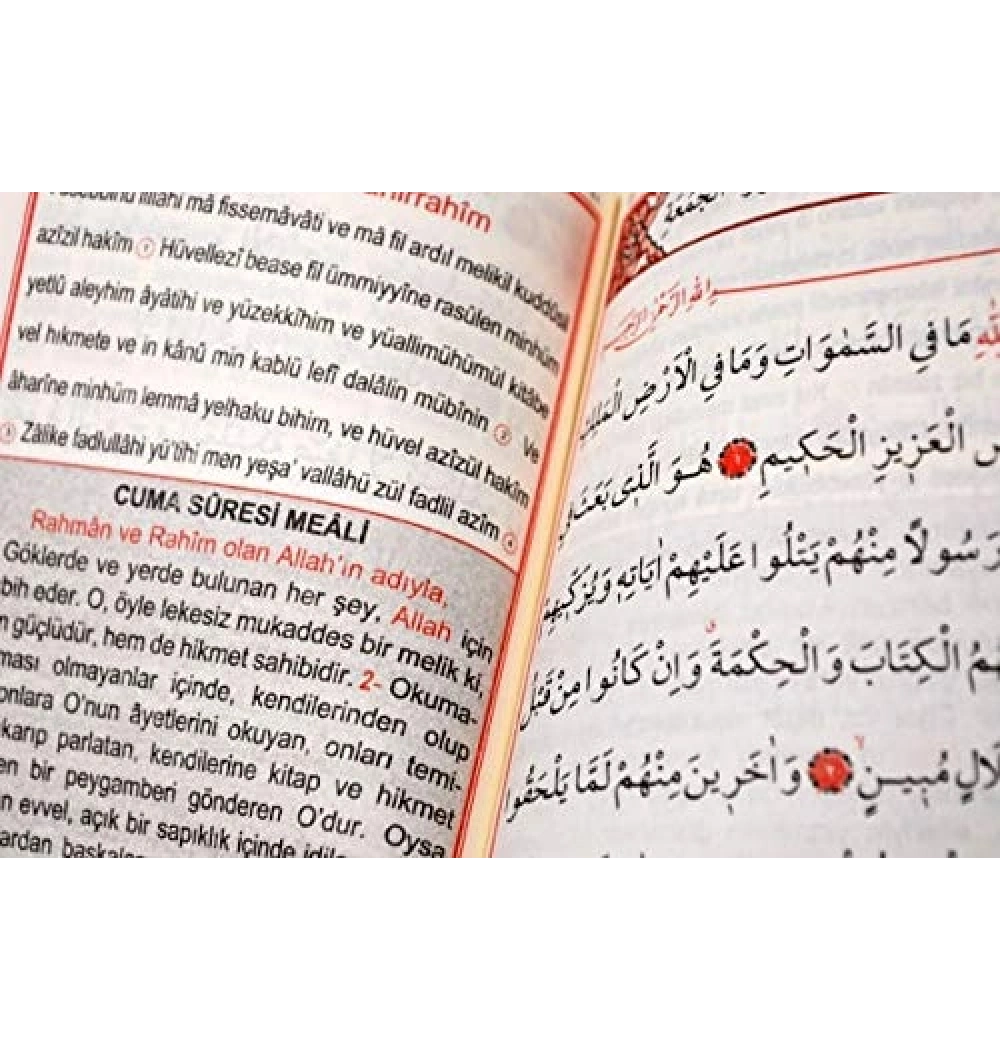 illâhi mâ fissemâvâti ve mâ fil ardıl melikil kuddûsil
azîzil hakîm 1 Hüvellezî bease fil ümmiyyîne rasûlen minhüm
yetlû aleyhim âyâtihî ve yüzekkîhim ve yüallimühümül kitâbe
vel hıkmete ve in kânû min kablü lefî dalâlin mübînin 2 Ve
âharîne minhüm lemmâ yelhaku bihim, ve hüvel azîzül hakîm
3 Zâlike fadlullâhi yü'tîhi men yeşa' vallâhü zül fadlil azîm 4
CUMA SÛRESİ MEÂLİ
Rahmân ve Rahîm olan Allah'ın adıyla,
Göklerde ve yerde bulunan her şey, Allah için
bih eder. O, öyle lekesiz mukaddes bir melik ki,
güçlüdür, hem de hikmet sahibidir. 2- Okuma-
ması olmayanlar içinde, kendilerinden olup
onlara O'nun âyetlerini okuyan, onları temi-
karıp parlatan, kendilerine kitap ve hikmet
en bir peygamberi gönderen O'dur. Oysa
evvel, açık bir sapıklık içinde
مَا فِي السَّمٰوَاتِ وَمَا فِي الْاَرْضِ
الْعَزِيزِ الْحَكِيمِ ١ هُوَ الَّذِي بَعَثَ
رَسُولًا مِنْهُمْ يَتْلُوا عَلَيْهِمْ اٰيَاتِهٖ وَيُزَكِّيهِمْ
الْكِتَابَ وَالْحِكْمَةَ وَاِنْ كَانُوا مِنْ قَبْلُ
مُبِينٍ ٢ وَاٰخَرِينَ مِنْهُمْ لَمَّا يَلْحَقُوا